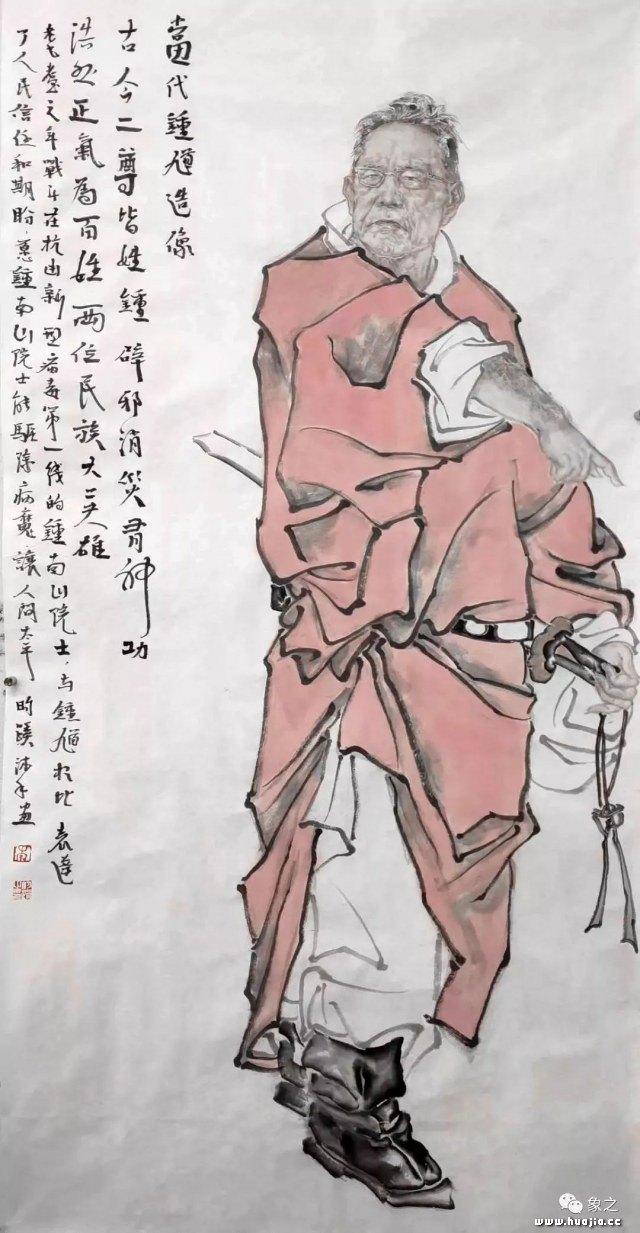 當代鍾馗造像
古今二尊皆姓鍾辟邪消災有神功
浩然正氣為百姓两位民族大英雄
老耄之年戰斗在抗击新型病毒第一线的鍾南山院士，与鍾馗相比表達
了人民信任和期盼，愿鍾南山院士能驅除病魔讓人間太平
象之
www.huajia.cc